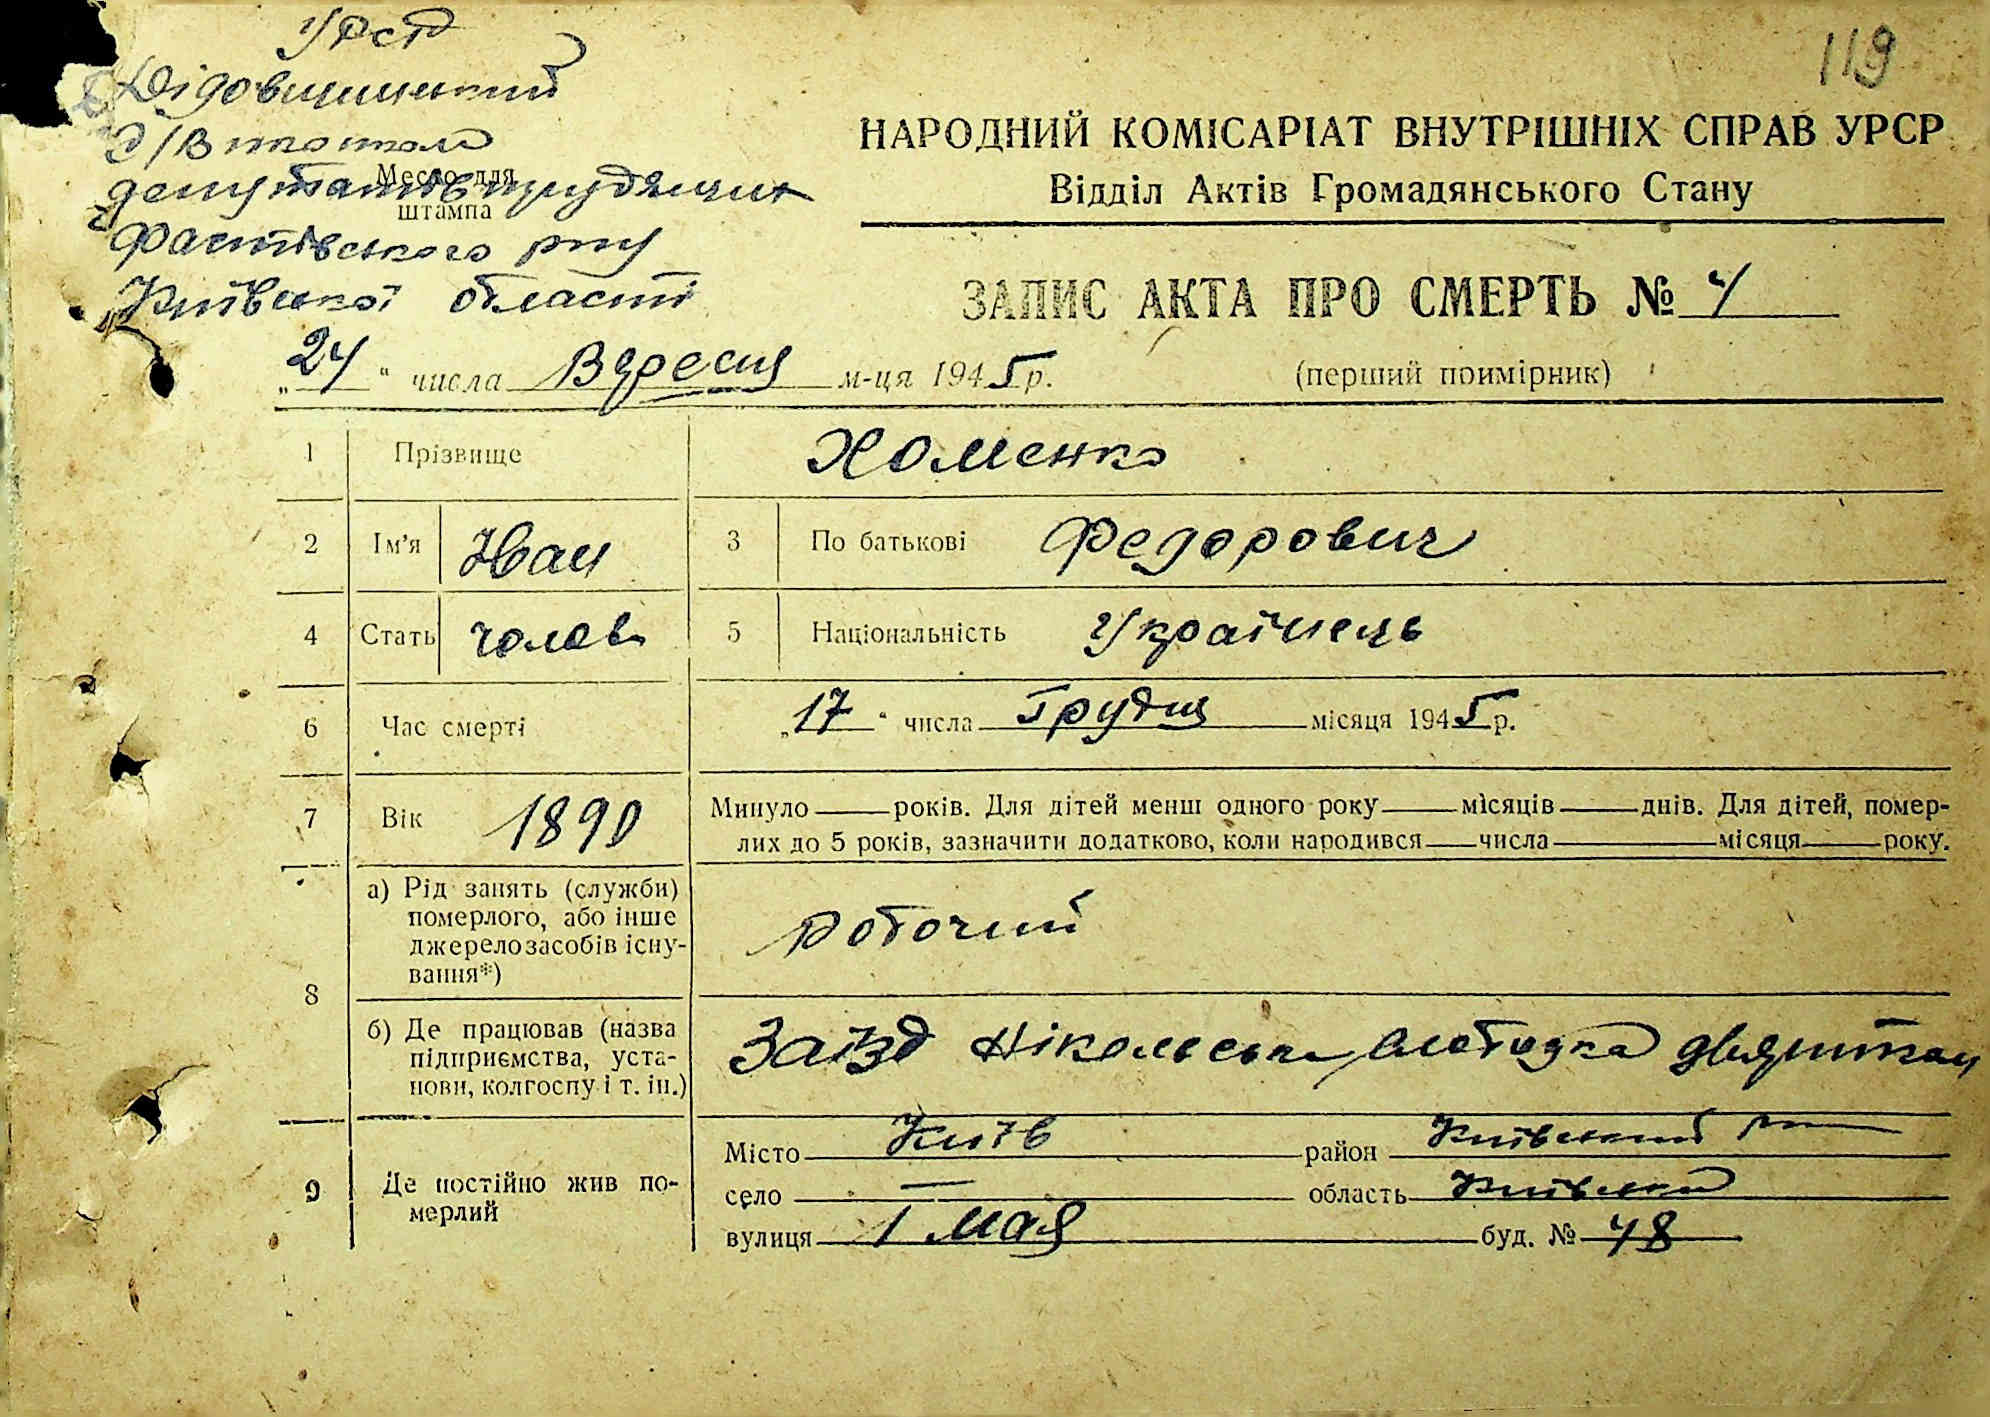 119
УРСР
Дідовщинський
депутатів трудящих
Фастівського р-ну
Київської області
Место для
штампа
НАРОДНИЙ КОМІСАРІАТ ВНУТРІШНІХ СПРАВ УРСР
Відділ Актів Громадянського Стану
ЗАПИС АКТА ПРО СМЕРТЬ № 4
„24" числа Вересня м-ця 1945 р.
(перший поимірник)
1 Прізвище Хоменко
2 Ім'я Иван 3 По батькові Федорович
4 Стать чолов 5 Національність Українець
6 Час смерті „17" числа Грудня місяця 1945 р.
7 Вік 1890 Минуло років. Для дітей менш одного року місяців днів. Для дітей, помер-
лих до 5 років, зазначити додатково, коли народився числа місяця року.
8 а) Рід занять (служби)
померлого, або інше
джерело засобів існу-
вання*)
робочий
б) Де працював (назва
підприємства, уста-
нови, колгоспу і т. ін.)
Нікольська слободка
9 Де постійно жив по-
мерлий
Місто Київ район Київський р-н
село — область Київська
вулиця 1 мая буд. № 48